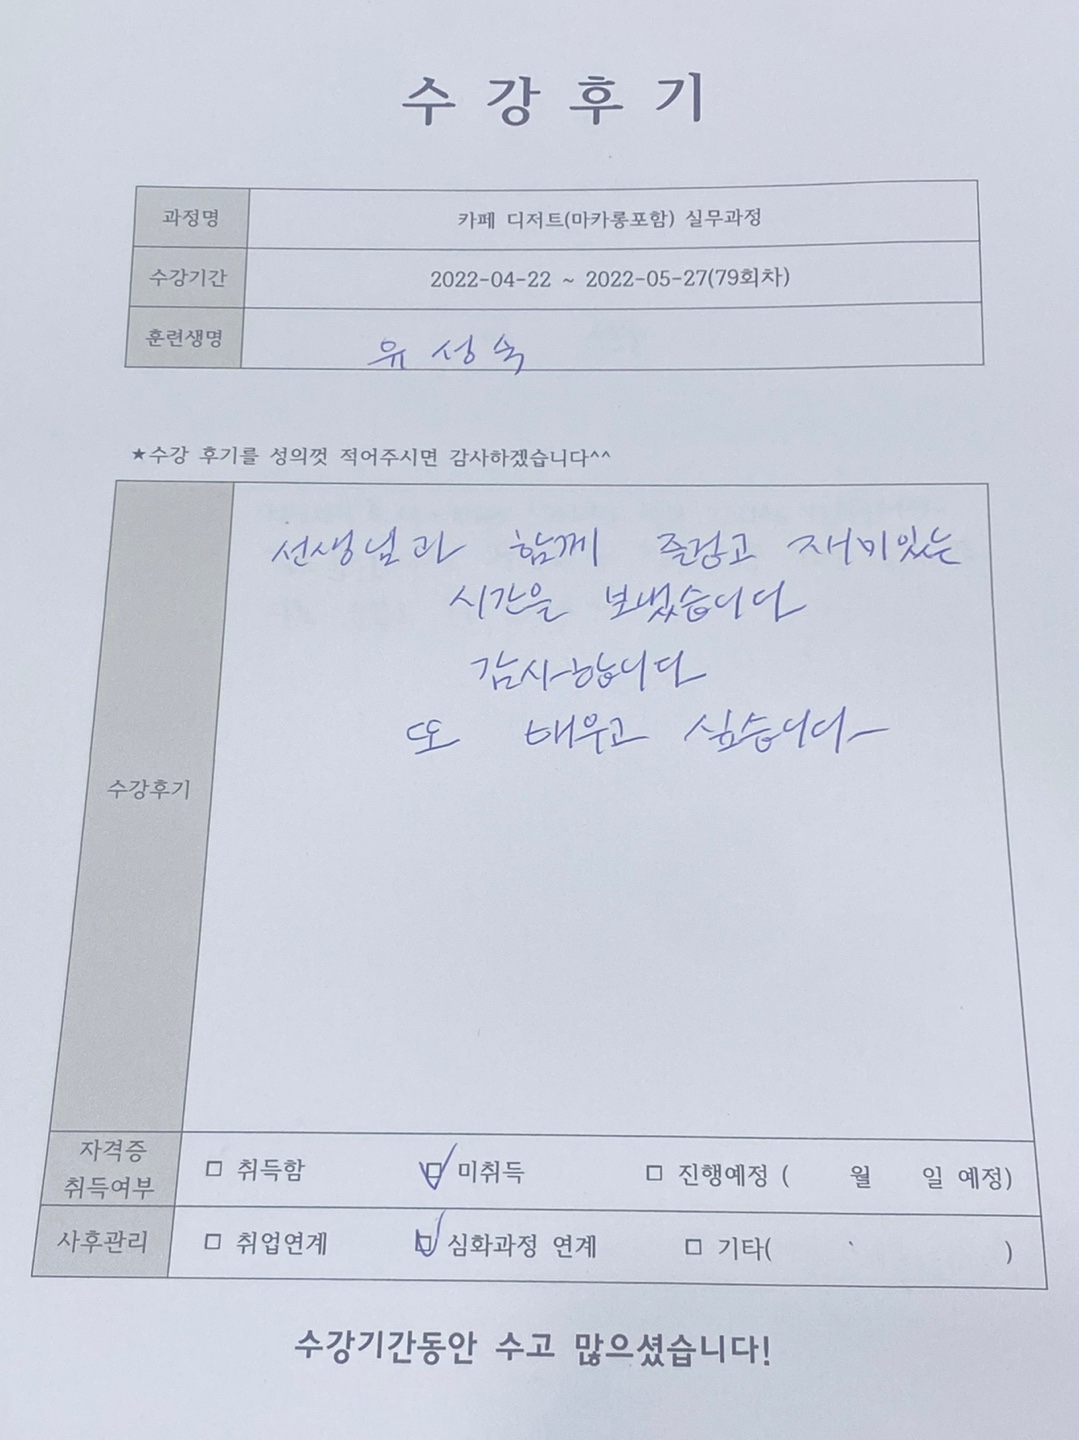 수강후기
과정명 카페 디저트(마카롱포함) 실무과정
수강기간 2022-04-22 ~ 2022-05-27(79회차)
훈련생명 유성숙
★수강 후기를 성의껏 적어주시면 감사하겠습니다^^
수강후기
선생님과 함께 즐겁고 재미있는
시간을 보냈습니다
감사합니다
또 배우고 싶습니다
자격증
취득여부
□ 취득함 ☑ 미취득 □ 진행예정 ( 월 일 예정)
사후관리 □ 취업연계 ☑ 심화과정 연계 □ 기타( )
수강기간동안 수고 많으셨습니다!